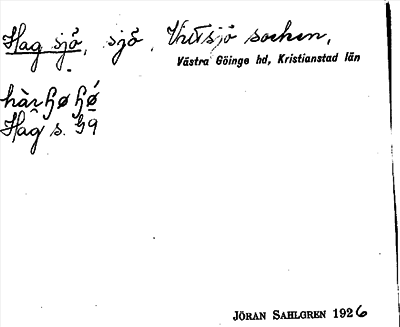 Hag sjö, sjö, Vittsjö socken,
Västra Göinge hd, Kristianstad län
Hag s. 99
JÖRAN SAHLGREN 1926